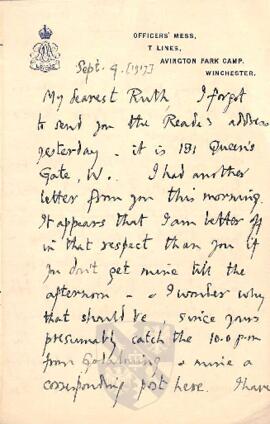 OFFICERS' MESS,
T LINES,
AVINGTON PARK CAMP.
WINCHESTER.
Sept. 9. [1917]
My dearest Ruth, I forgot
to send you the Reade's address
yesterday – it is 191 Queen's
Gate, W.. I had another
letter from you this morning.
It appears that I am better off
in that respect than you if
you don't get mine till the
afternoon – & I wonder why
that should be, since yours
presumably catch the 10.0 p.m
from Godalming & mine a
corresponding post here. I have